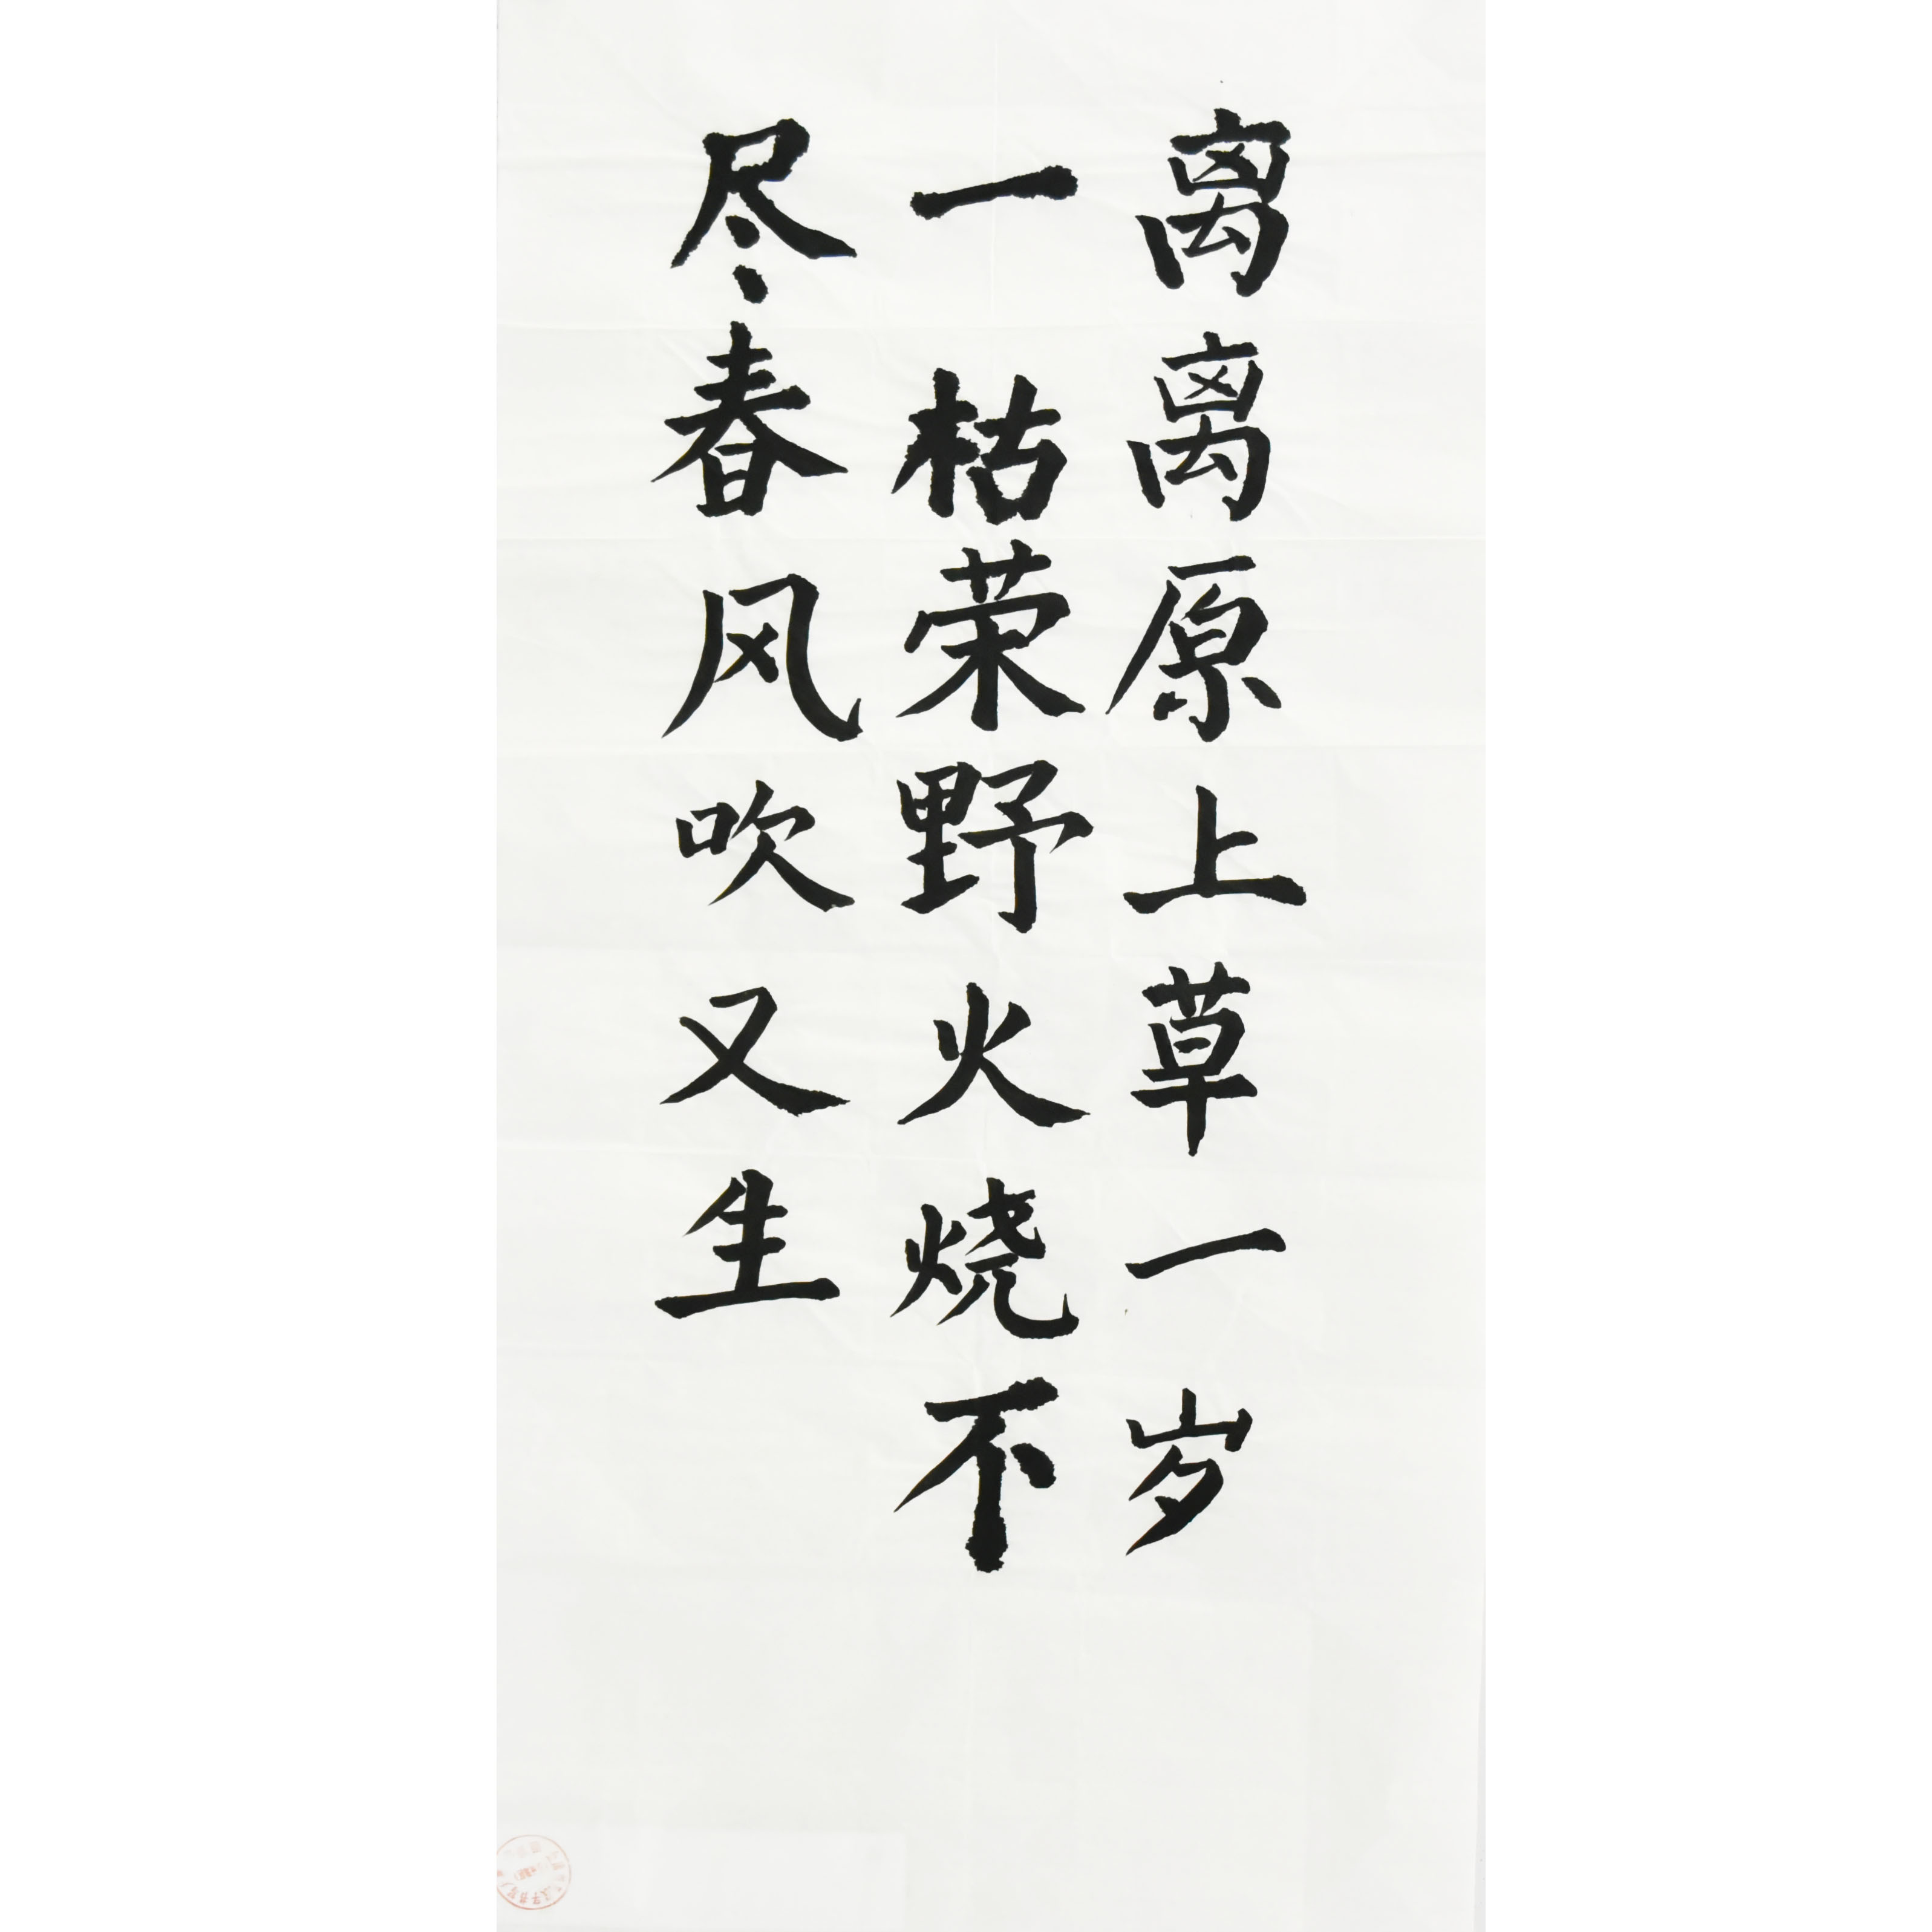 离离原上草一岁
一枯荣野火烧不
尽春风吹又生